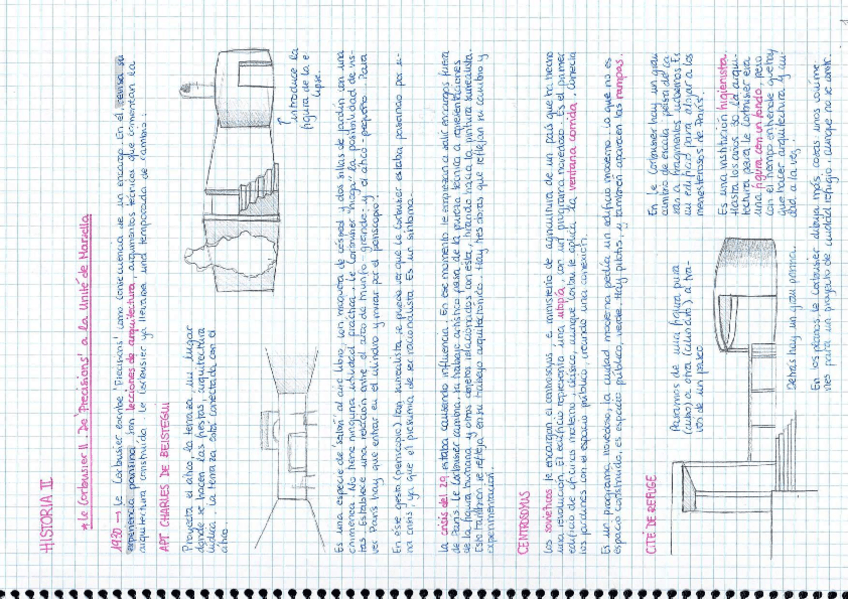 HISTORIA II
* Le Corbusier II. De 'Precisions' a la Unité de Marsella
1930 → Le Corbusier escribe 'Precisions' como consecuencia de un encargo. En él revisa su
experiencia parisina. Son lecciones de arquitectura, argumentos técnicos que comentan la
arquitectura construida. Le Corbusier ya llevaba una temporada de cambio.
APT. CHARLES DE BEISTEGUI
Proyecta el ático, la terraza, un lugar
donde se hacen las fiestas, arquitectura
lúdica. La terraza está conectada con el
ático.
↑ introduce la
figura de la e
lipse.
Es una especie de 'salón' al aire libre, con moqueta de césped y dos sillas de jardín con una
chimenea. No tiene ninguna utilidad práctica. Le Corbusier "niega" la posibilidad de vis-
tas. Establece una relación entre el arco de triunfo -grande- y el ático -pequeño-. Para
ver París hay que entrar en el cilindro y mirar por el periscopio.
En este gesto (periscopio) tan surrealista, se puede ver que Le Corbusier estaba pasando por u-
na crisis, ya que él presumía de ser racionalista. Es un síntoma.
La crisis del 29 estaba causando influencia. En ese momento le empiezan a salir encargos fuera
de París. Le Corbusier cambia, su trabajo artístico pasa de la pureza técnica a representaciones
de la figura humana y otros objetos relacionados con esta, mirando hacia la pintura surrealista.
Esto también se refleja en su trabajo arquitectónico. Hay tres obras que reflejan su cambio y
experimentación.
CENTROSOYUS
Los soviéticos le encargan el centrosoyus, el ministerio de agricultura de un país que ha hecho
una revolución. El edificio representa una utopía, con un programa novedoso. Es el primer
edificio de oficinas moderno, clásico, aunque Corbu le aplica la ventana corrida. Conecta
las porciones con el espacio público, creando una conexión.
Es un programa novedoso, la ciudad moderna pedía un edificio moderno. Lo que no es
espacio construido, es espacio público, verde. Hay pilotis, y también aparecen las rampas.
CITÉ DE REFUGE
Pasamos de una figura pura
(cubo) a otra (cilindro) a tra-
vés de un paseo
Detrás hay un gran prisma.
En Le Corbusier hay un gran
cambio de escala, pasa de la
casa a fragmentos urbanos. Es
un edificio para alojar a los
menesterosos de París.
Es una institución higienista.
Hasta los años 30 la arqui-
tectura para Le Corbusier era
una figura con un fondo, pero
con el tiempo entiende que hay
que hacer arquitectura y ciu-
dad a la vez.
En los planos, Le Corbusier dibuja más cosas, unos volúme-
nes para un proyecto de ciudad refugio, aunque no se constr.